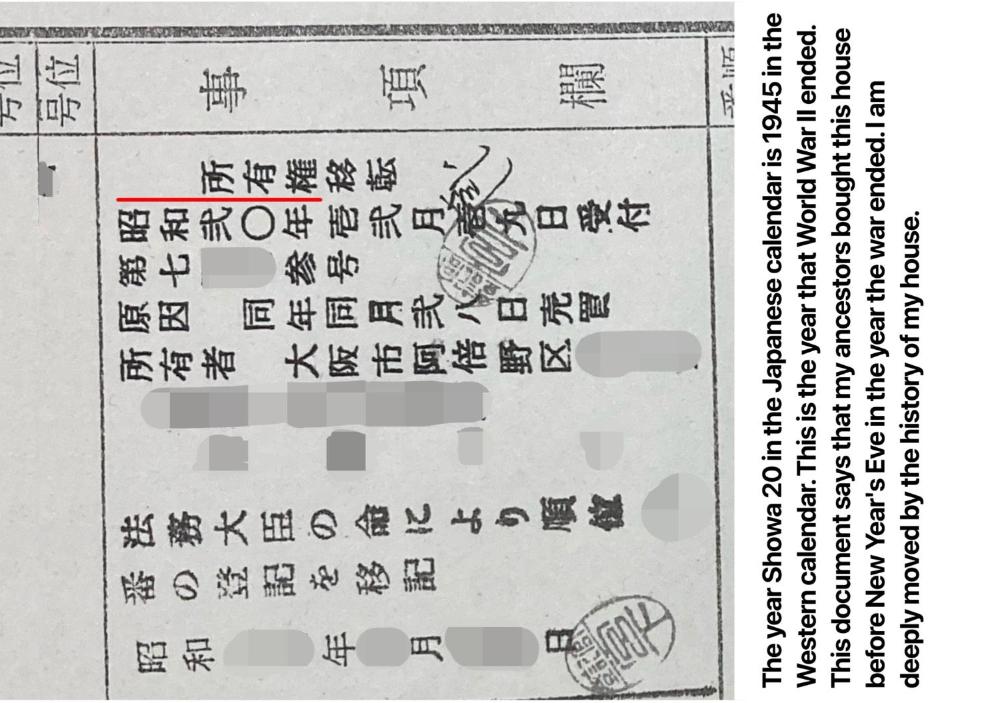 号位
事項欄
所有権移転
昭和弐〇年壱弐月 九日受付
第七 参号
原因 同年同月弐八日売買
所有者 大阪市阿倍野区
法務大臣の命により順位
番の登記を移記
昭和 年 月 日
The year Showa 20 in the Japanese calendar is 1945 in the
Western calendar. This is the year that World War II ended.
This document says that my ancestors bought this house
before New Year's Eve in the year the war ended. I am
deeply moved by the history of my house.